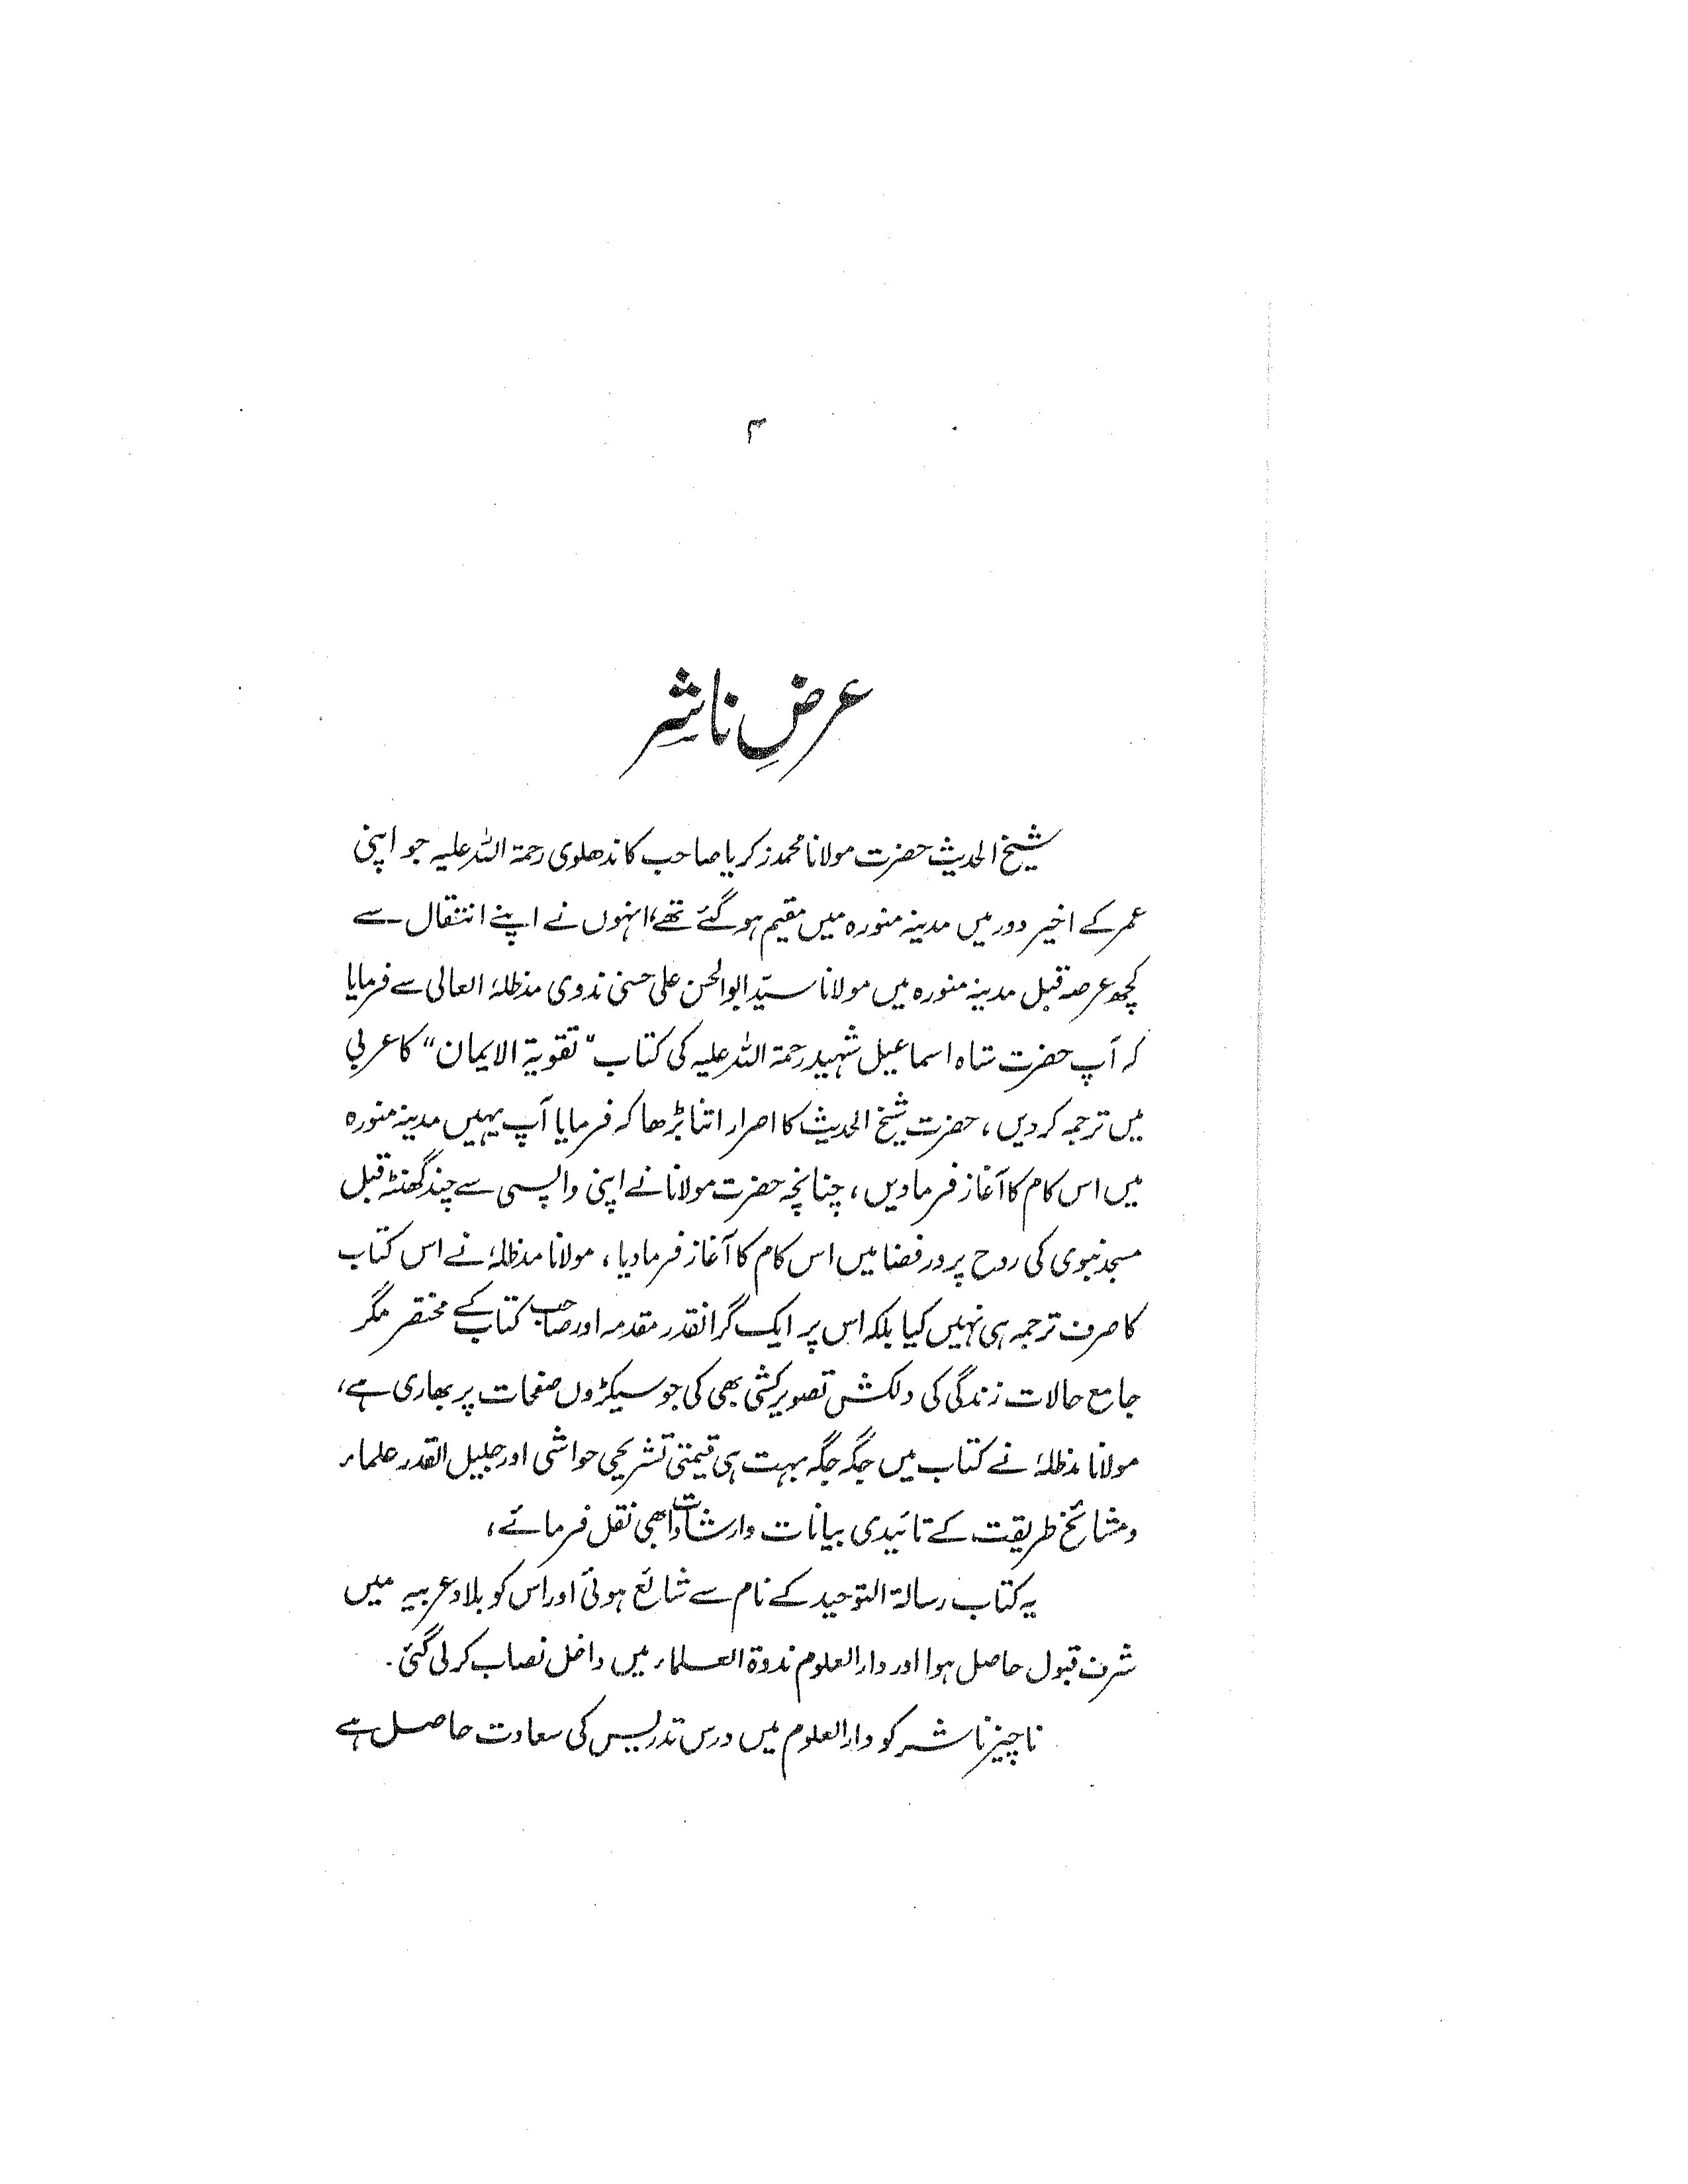 ۳
عرضِ ناشِر
شیخ الحدیث حضرت مولانا محمد زکریا صاحب کاندھلوی رحمۃ اللہ علیہ جو اپنی
عمر کے اخیر دور میں مدینہ منورہ میں مقیم ہو گئے تھے، انہوں نے اپنے انتقال سے
کچھ عرصہ قبل مدینہ منورہ میں مولانا سیّد ابوالحسن علی حسنی ندوی مدظلہٗ العالی سے فرمایا
کہ آپ حضرت شاہ اسماعیل شہید رحمۃ اللہ علیہ کی کتاب "تقویۃ الایمان" کا عربی
میں ترجمہ کردیں، حضرت شیخ الحدیث کا اصرار اتنا بڑھا کہ فرمایا آپ یہیں مدینہ منورہ
میں اس کام کا آغاز فرمادیں، چنانچہ حضرت مولانا نے اپنی واپسی سے چند گھنٹہ قبل
مسجد نبوی کی روح پرور فضا میں اس کام کا آغاز فرمادیا، مولانا مدظلہٗ نے اس کتاب
کا صرف ترجمہ ہی نہیں کیا بلکہ اس پر ایک گرانقدر مقدمہ اور صاحب کتاب کے مختصر مگر
جامع حالات زندگی کی دلکش تصویر کشی بھی کی جو سیکڑوں صفحات پر بھاری ہے،
مولانا مدظلہٗ نے کتاب میں جگہ جگہ بہت ہی قیمتی تشریحی حواشی اور جلیل القدر علماء
ومشائخ طریقت کے تائیدی بیانات وارشادات بھی نقل فرمائے،
یہ کتاب رسالۃ التوحید کے نام سے شائع ہوئی اور اس کو بلاد عربیہ میں
شرف قبول حاصل ہوا اور دار العلوم ندوۃ العلماء میں داخل نصاب کرلی گئی۔
ناچیز ناشر کو دار العلوم میں درس تدریس کی سعادت حاصل ہے